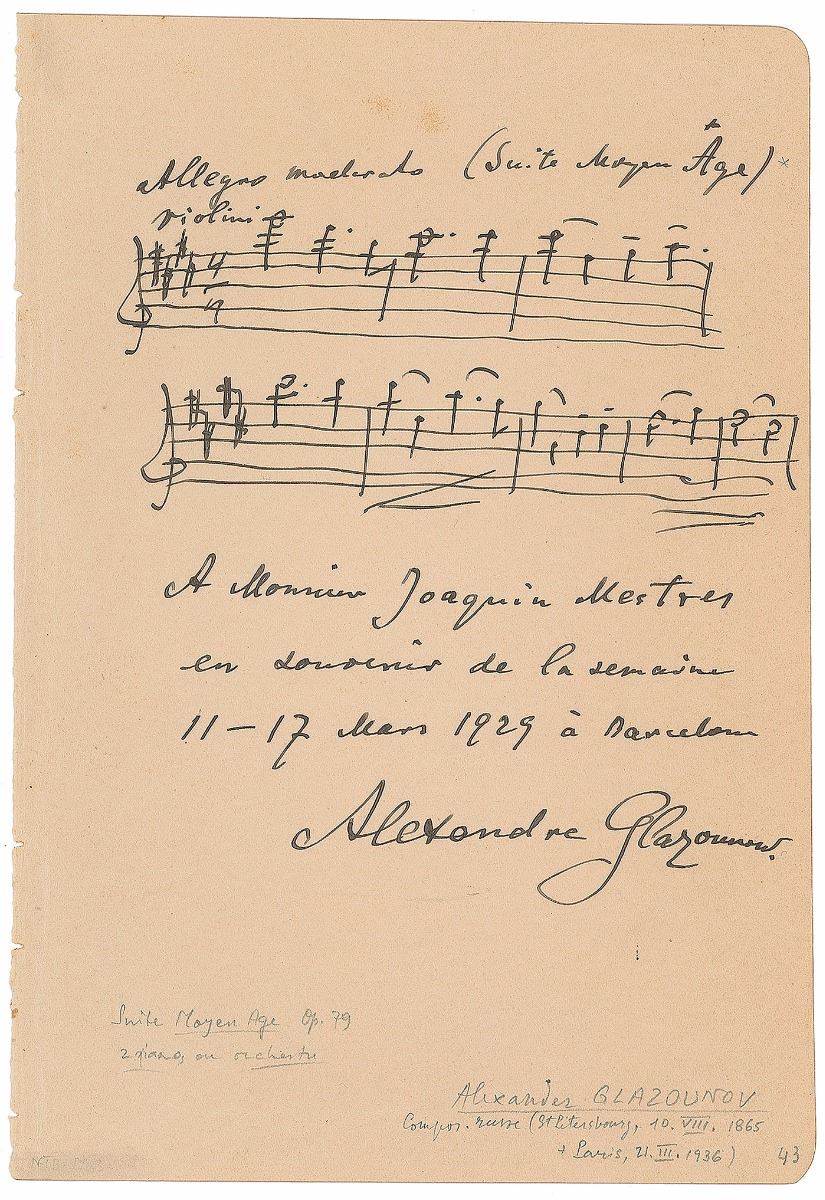 Allegro moderato (Suite Moyen Âge) *
violini
4
A Monsieur Joaquin Mestres
en souvenir de la semaine
11–17 Mars 1929 à Barcelone
Alexandre Glazounow.
Suite Moyen Age Op. 79
2 pianos ou orchestre
Alexander GLAZOUNOV
Compos. russe (St Petersbourg, 10. VIII. 1865
+ Paris, 21. III. 1936)
43